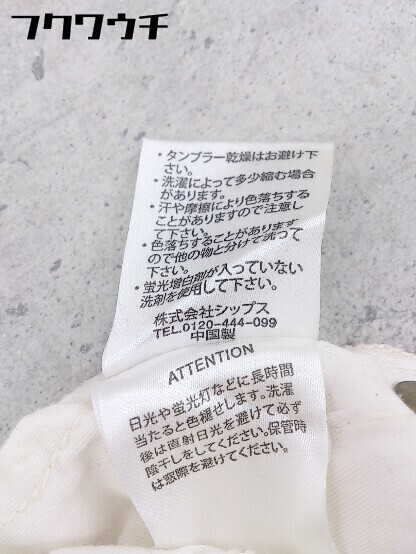 フクワウチ
・タンブラー乾燥はお避け下
さい。
・洗濯によって多少縮む場合
があります。
・汗や摩擦により色落ちする
ことがありますので注意し
て下さい。
・色落ちすることがあります
ので他の物と分けて洗って
下さい。
・蛍光増白剤が入っていない
洗剤を使用して下さい。
株式会社シップス
TEL.0120-444-099
中国製
ATTENTION
日光や蛍光灯などに長時間
当たると色褪せします。洗濯
後は直射日光を避けて必ず
陰干しをしてください。保管時
は窓際を避けてください。